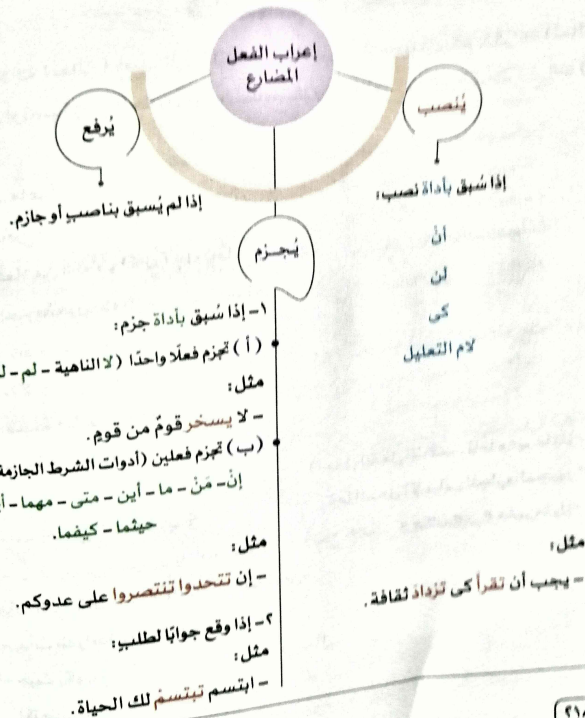 إعراب الفعل
المضارع
يُنصب
إذا سُبق بأداة نصب:
أنْ
لن
كى
لام التعليل
مثل:
- يجب أن تقرأ كى تزدادَ ثقافة.
يُرفع
إذا لم يُسبق بناصبٍ أو جازم.
يُجـزم
١- إذا سُبق بأداة جزم:
(أ) تجزم فعلًا واحدًا (لا الناهية - لم -
مثل:
- لا يسخر قومٌ من قومٍ.
(ب) تجزم فعلين (أدوات الشرط الجازمة
إنْ - مَنْ - ما - أين - متى - مهما -
حيثما - كيفما.
مثل:
- إن تتحدوا تنتصروا على عدوكم.
٢- إذا وقع جوابًا لطلبٍ:
مثل:
- ابتسم تبتسمْ لك الحياة.